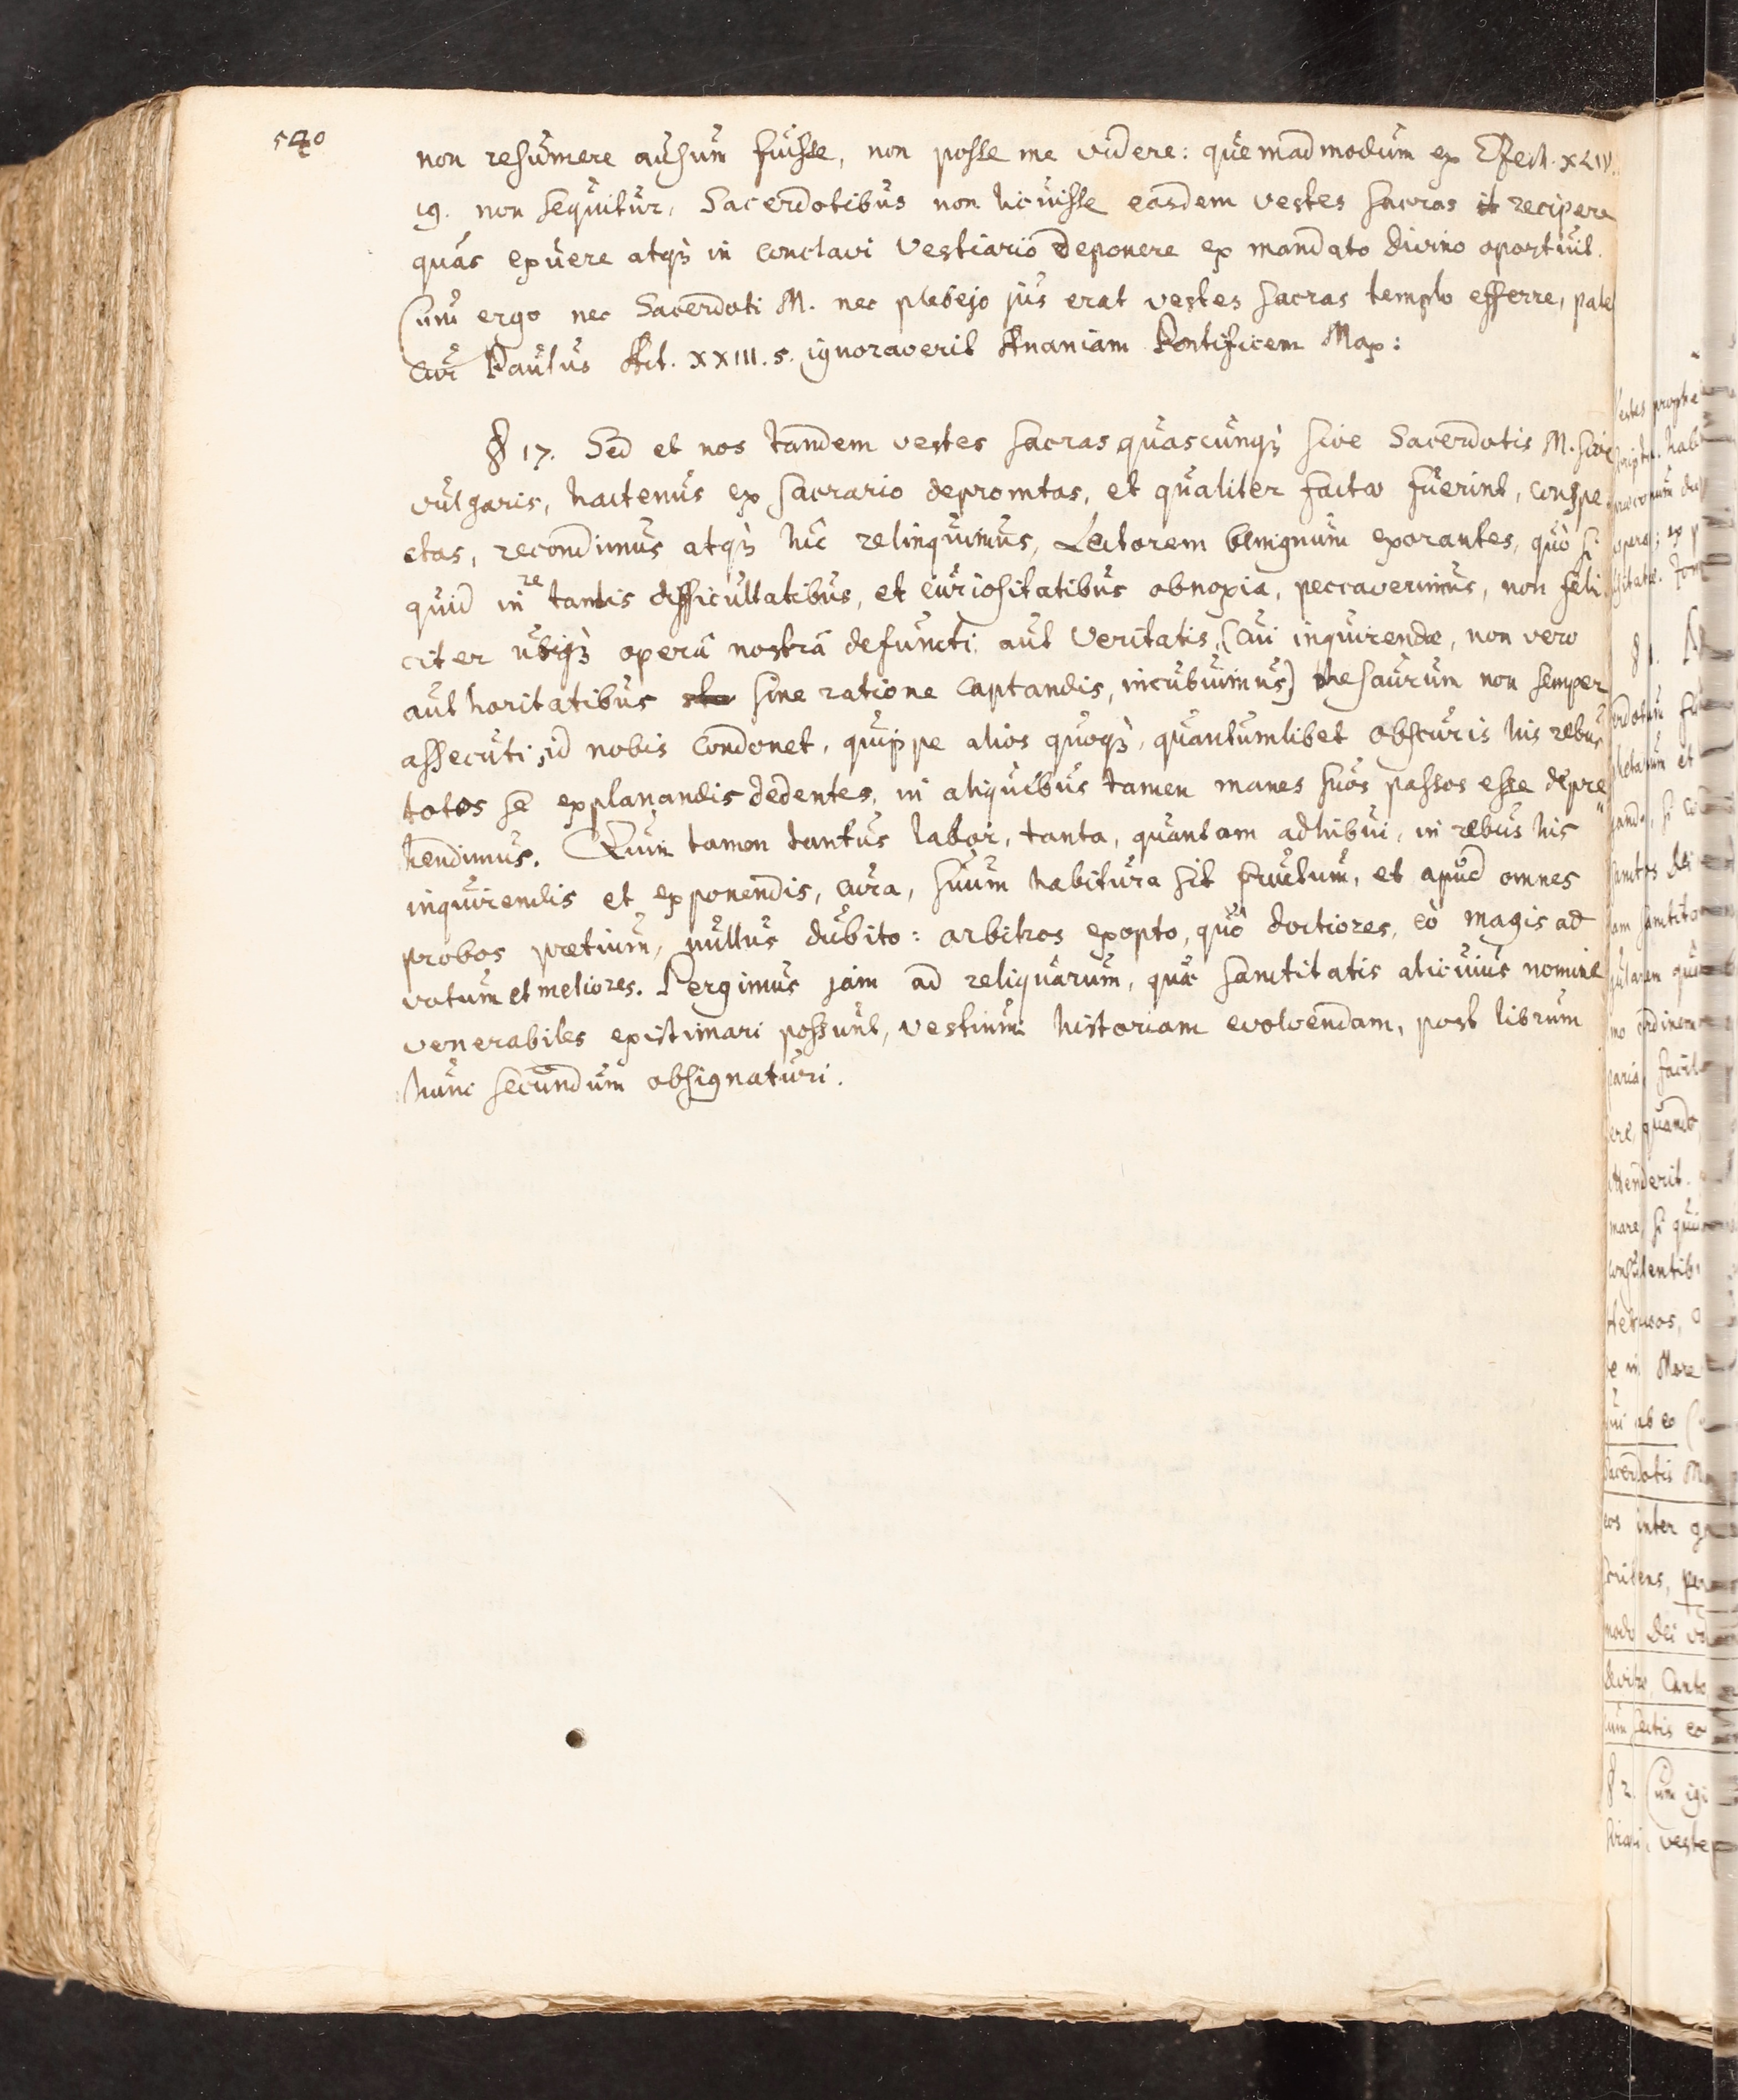 540
non resumere ausum fuisse, non posse me videre: quemadmodum ex Ezech. XLIV.
19. non sequitur, Sacerdotibus non licuisse easdem vestes sacras recipere
quas exuere atq; in conclavi vestiario deponere ex mandato divino oportuit.
Cum ergo nec Sacerdoti M. nec plebejo jus erat vestes sacras templo efferre, pate
cur Paulus Act. XXIII. 5. ignoraverit Ananiam Pontificem Max:
§ 17. Sed et nos tandem vestes sacras quascunq; sive Sacerdotis M. sive
vulgaris, hactenus ex sacrario depromtas, et qualiter factæ fuerint, conspe
ctas, recondimus atq; hic relinquimus, Lectorem benignum exorantes, quò si
quid in re tantis difficultatibus, et curiositatibus obnoxia, peccaverimus, non feli
citer ubiq; operâ nostrâ defuncti aut veritatis, (cui inquirendæ, non vero
authoritatibus sine ratione captandis, incubuimus) thesaurum non semper
assecuti, id nobis condonet, quippe alios quoq;, quantumlibet obscuris his rebus
totos se explanandis dedentes, in aliquibus tamen manes suos passos esse depre
hendimus. Quin tamen tantus labor, tanta, quantam adhibui, in rebus his
inquirendis et exponendis, cura, suum habitura sit fructum, et apud omnes
probos pretium, nullus dubito: arbitros exopto, quò doctiores, eò magis ad
votum et meliores. Pergimus jam ad reliquarum, quæ sanctitatis alicuius nomine
venerabiles existimari possunt, vestium historiam evolvendam, post librum
hunc secundum obsignaturi.